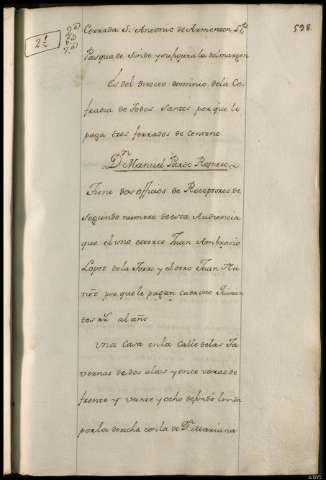 598.
2ª
2ª
6ª
7ª
Cerrada S. Antonio de Armenton D.ⁿ
Pasqua de Sonde y su figura la del margen
Es del directo dominio de la Co
fradia de Todos Santos por que le
paga tres ferrados de centeno
D.ⁿ Manuel Pardo
Tiene dos officios de Receptores de
segundo numero de esta Audiencia
que el uno exerce Juan Ambrosio
Lopez de la Torre y el otro Juan Mu
ñoz por que le pagan cada uno
tos r.ˢ al año
Una Casa en la Calle de las Ta
vernas de dos altos y once varas de
frente y veinte y ocho de fondo linda
por la derecha con la de D.ª Mariana